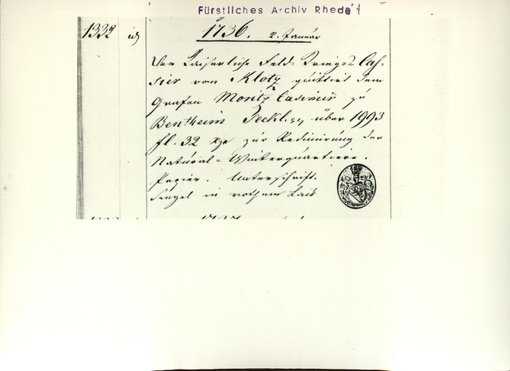 Fürstliches Archiv Rheda
1332
1736. 2. Januar
Der Kaiserliche Feld Kriegs Cas-
sier von Klotz quittirt dem
Grafen Moritz Casimir zu
Bentheim Tecklbg über 1993
fl. 32 Xr zur Redimirung der
Natural-Winterquartiere.
Papier. Unterschrift.
Siegel in rothem Lack